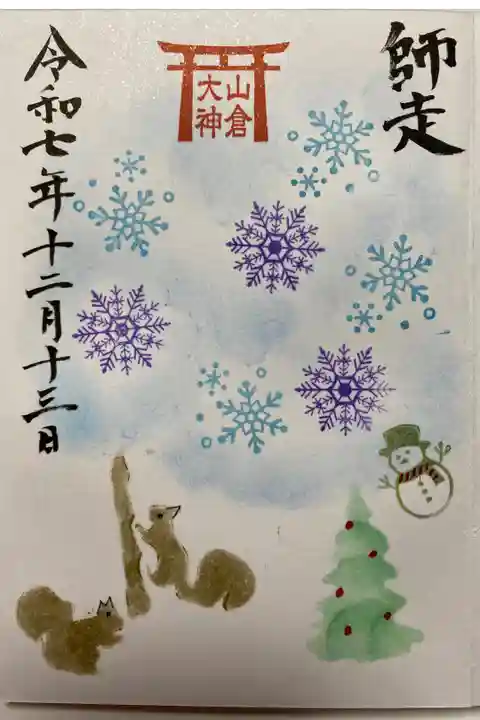 師走
山倉
大神
令和七年十二月十三日